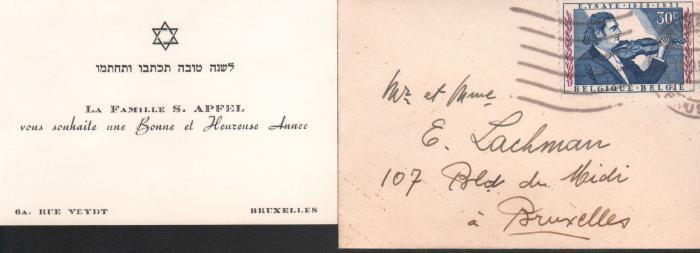 לשנה טובה תכתבו ותחתמו
LA FAMILLE S. APFEL
vous souhaite une Bonne et Heureuse Annee
6A. RUE VEYDT BRUXELLES
E. YSAYE · 1858-1931
30c
BELGIQUE-BELGIE
Mr et Mme
E. Lachman
107 Bld du Midi
à Bruxelles